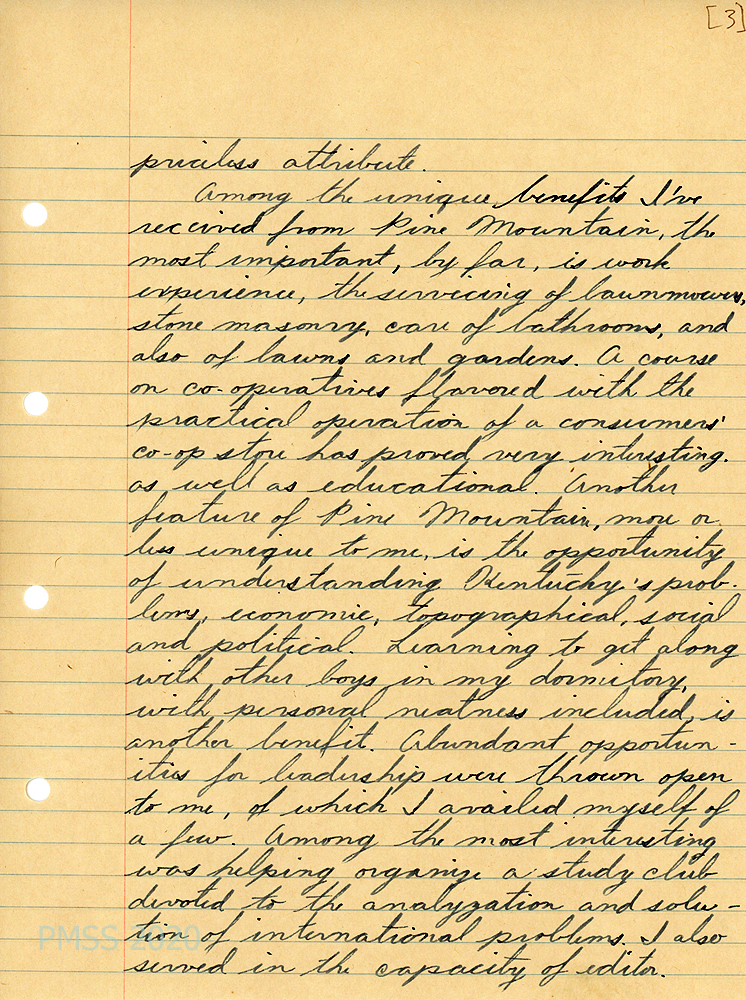 [3]
priceless attribute.
Among the unique benefits I've
received from Pine Mountain, the
most important, by far, is work
experience, the servicing of lawnmowers,
stone masonry, care of bathrooms, and
also of lawns and gardens. A course
on co-operatives flavored with the
practical operation of a consumers'
co-op store has proved very interesting.
as well as educational. Another
feature of Pine Mountain, more or
less unique to me, is the opportunity
of understanding Kentucky's prob-
lems, economic, topographical, social
and political. Learning to get along
with other boys in my dormitory,
with personal neatness included, is
another benefit. Abundant opportun-
ities for leadership were thrown open
to me, of which I availed myself of
a few. Among the most interesting
was helping organize a study club
devoted to the analyzation and solu-
tion of international problems. I also
served in the capacity of editor.
PMSS 2020